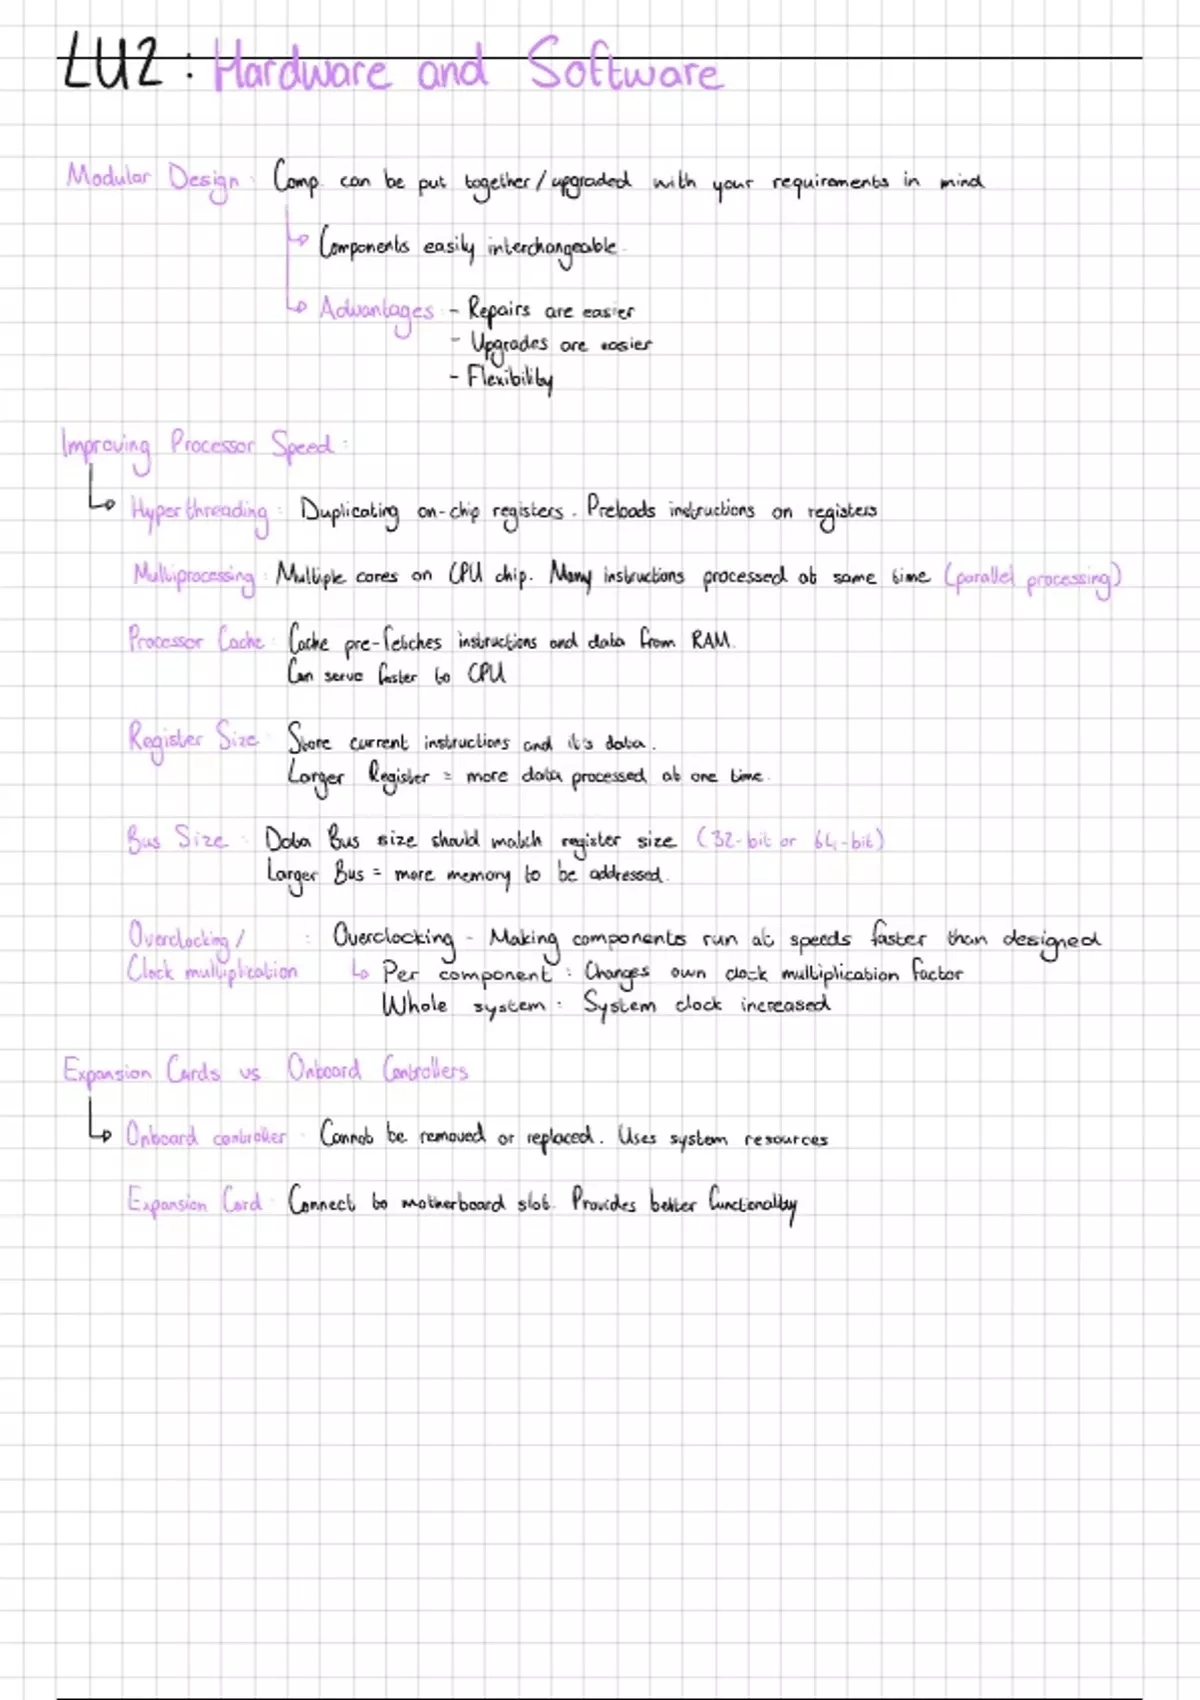 LU2: Hardware and Software
Modular Design: Comp. can be put together/upgraded with your requirements in mind
Components easily interchangeable.
Advantages: - Repairs are easier
- Upgrades are easier
- Flexibility
Improving Processor Speed:
Hyperthreading: Duplicating on-chip registers. Preloads instructions on registers
Multiprocessing: Multiple cores on CPU chip. Many instructions processed at same time (parallel processing)
Processor Cache: Cache pre-fetches instructions and data from RAM.
Can serve faster to CPU
Register Size: Store current instructions and it's data.
Larger Register = more data processed at one time.
Bus Size: Data Bus size should match register size (32-bit or 64-bit)
Larger Bus = more memory to be addressed.
Overclocking/ : Overclocking - Making components run at speeds faster than designed
Clock multiplication Per component: Changes own clock multiplication factor
Whole system: System clock increased
Expansion Cards vs Onboard Controllers
Onboard controller: Cannot be removed or replaced. Uses system resources
Expansion Card: Connect to motherboard slot. Provides better functionality